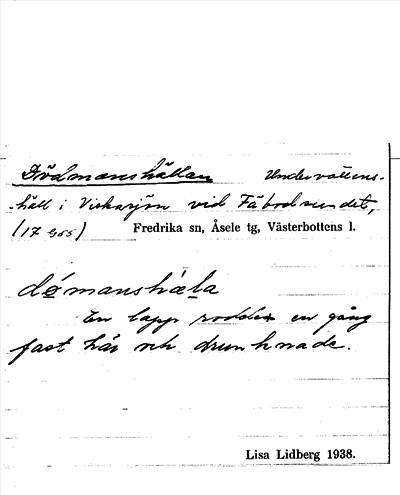 Dödmanshällan Undervattens-
häll i Viskasjön vid Fäbodsundet,
(17 955) Fredrika sn, Åsele tg, Västerbottens l.
dǿmanshæla
En lapp rodde en gång
fast här och drunknade.
Lisa Lidberg 1938.